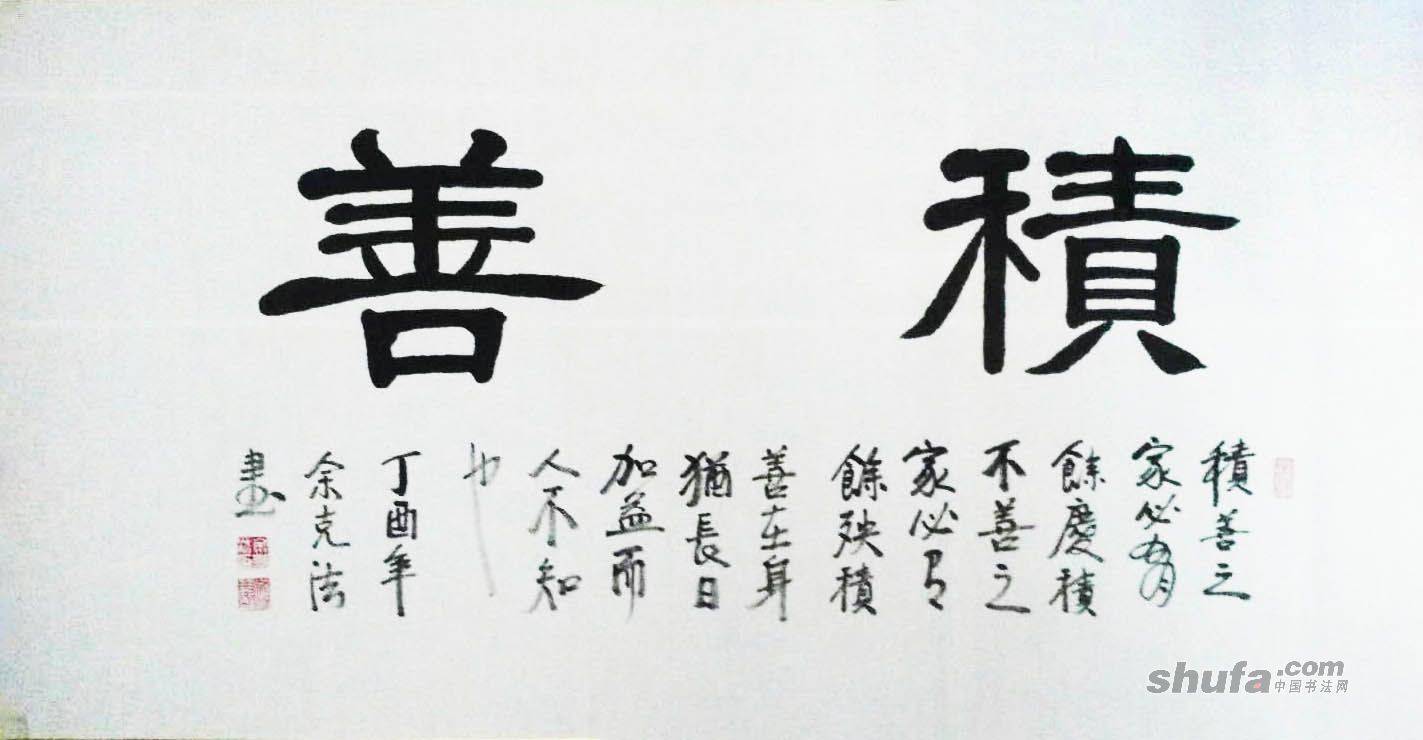 積善
積善之
家必有
餘慶積
不善之
家必有
餘殃積
善在身
猶長日
加益而
人不知
也
丁酉年
余克法
書
shufa.com
中国书法网